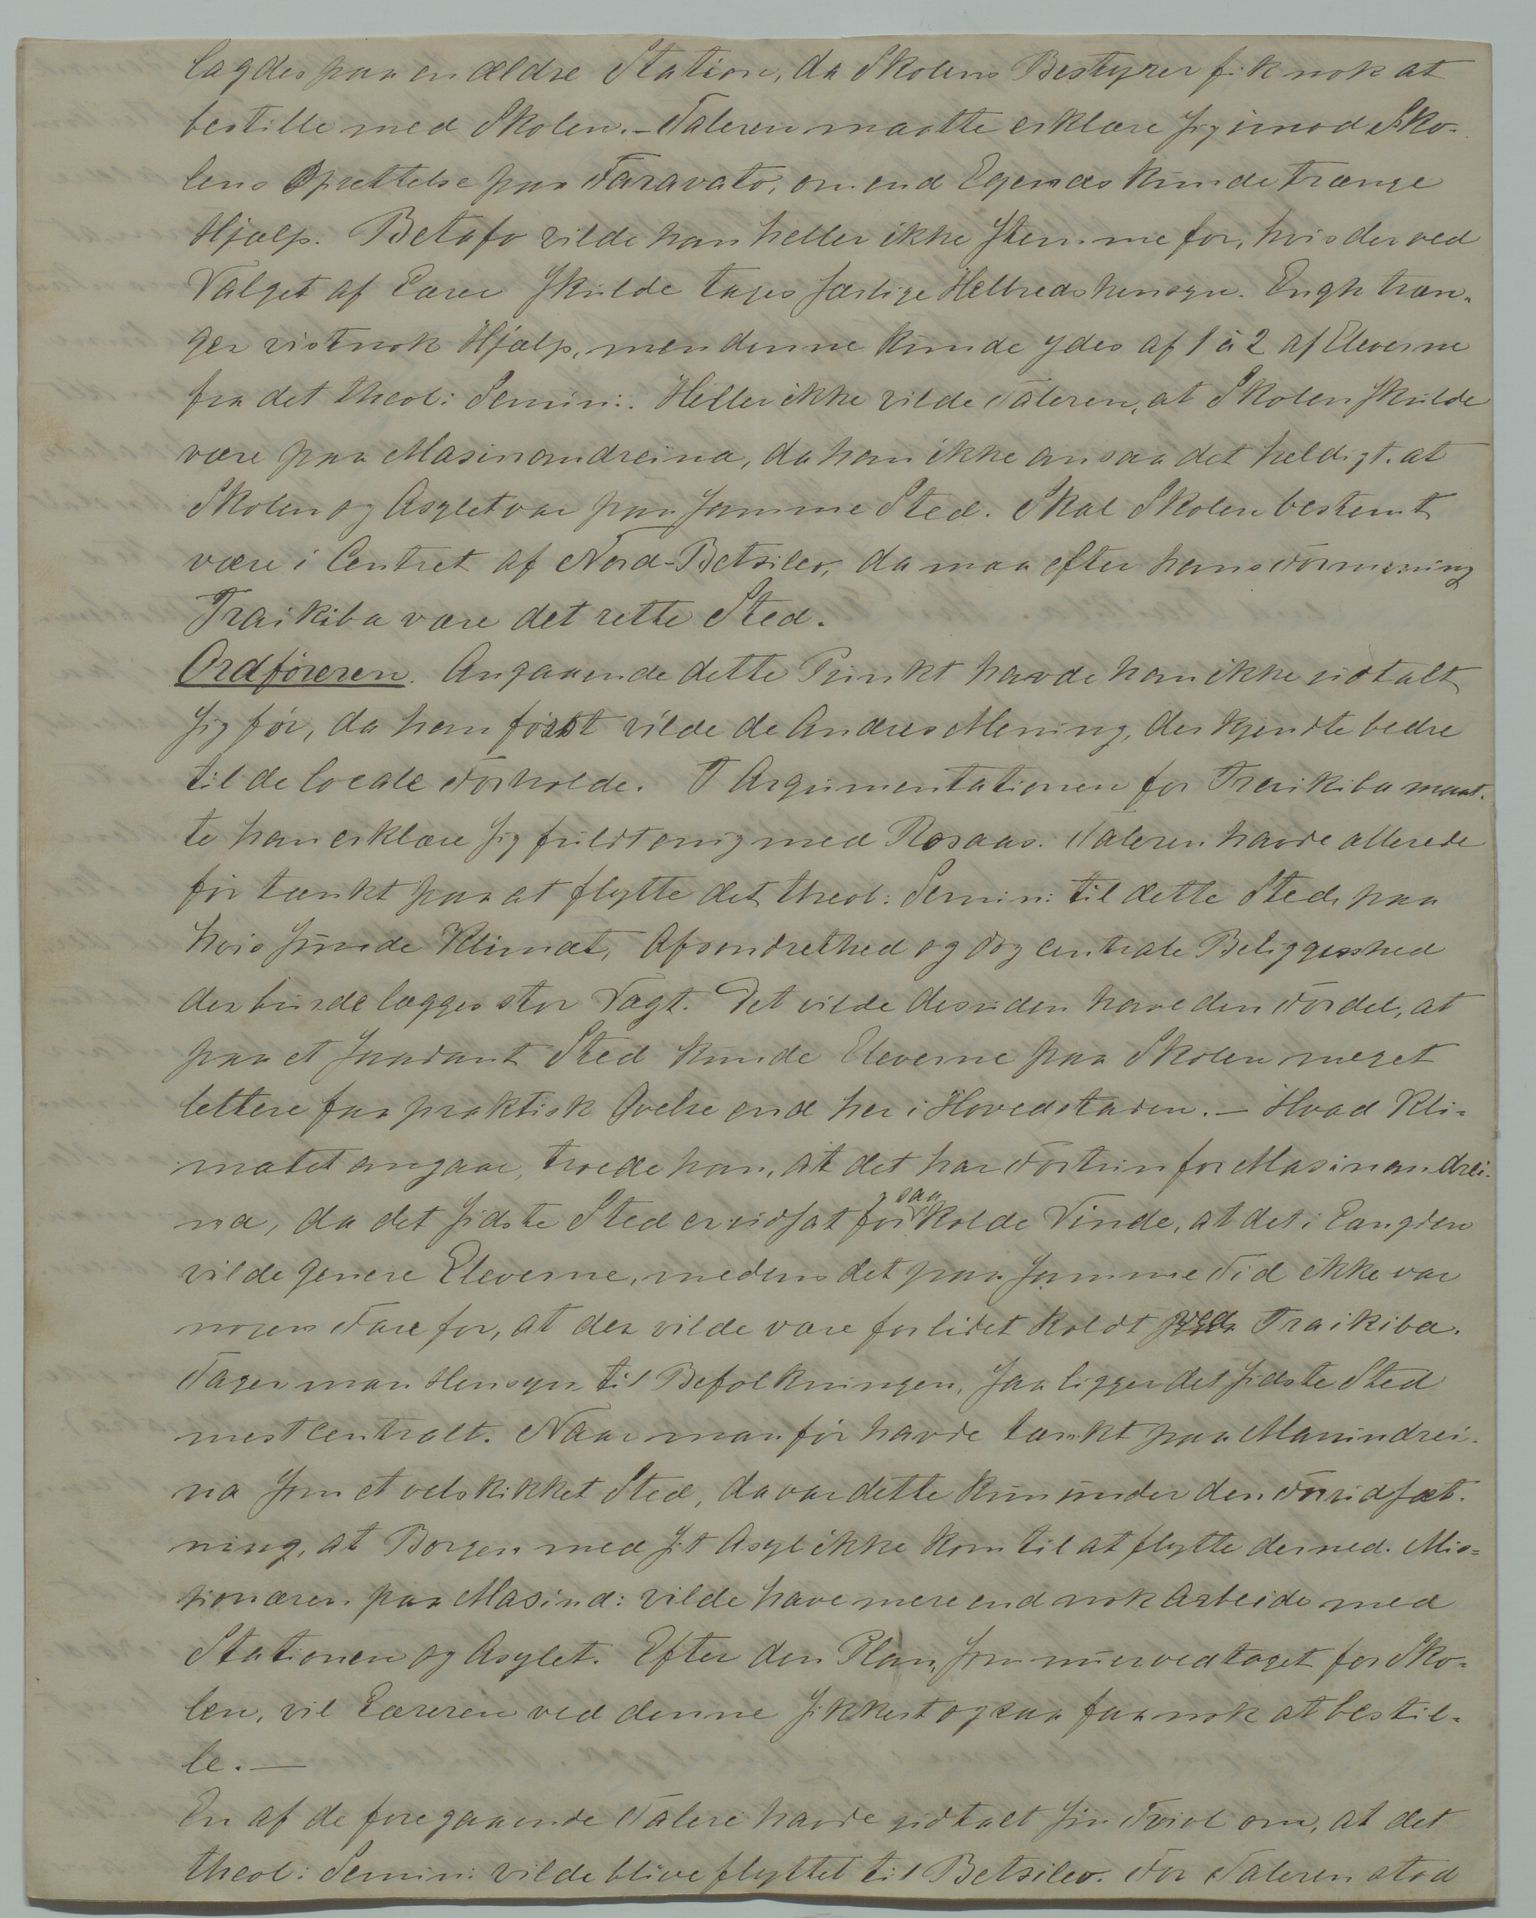 lagdes paa en ældre Station, da Skolens Bestyrer fik nok at
bestille med Skolen. – Taleren maatte erklære sig imod Sko-
lens Oprettelse paa Faravato, om end Egenæs kunde trænge
Hjælp. Betafo vilde han heller ikke stemme for, hvis der ved
Valget af Lærer skulde tages særlige Helbredshensyn. Engh træn-
ger vistnok Hjælp, men denne kunde ydes af 1 à 2 af Eleverne
fra det theol: Semin:. Heller ikke vilde Taleren, at Skolen skulde
være paa Masinandreina, da han ikke ansaa det heldigt, at
Skolen og Asylet var paa samme Sted. Skal Skolen bestemt
være i Centret af Nord-Betsileo, da maa efter hans Formening
Traikiba være det rette Sted.
Ordføreren. Angaaende dette Punkt havde han ikke udtalt
sig før, da han først vilde de Andres Mening, der kjendte bedre
til de locale Forholde. I Argumentationen for Traikiba maat-
te han erklære sig fuldt enig med Rosaas. Taleren havde allerede
før tænkt paa at flytte det theol: Semin: til dette Sted, paa
hvis sunde Klimat, Afsondrethed og dog centrale Beliggenhed
der burde lægges stor Vægt. Det vilde desuden have den Fordel, at
paa et saadant Sted kunde Eleverne paa Skolen meget
lettere faa praktisk Øvelse end her i Hovedstaden. – Hvad Kli-
matet angaar, troede han, at det har Fortrin for Masinandrei-
na, da det sidste Sted er udsat for saa kolde Vinde, at det i Længden
vilde genere Eleverne, medens det paa samme Tid ikke var
nogen Fare for, at der vilde være forlidet koldt ved Traikiba.
Tager man Hensyn til Befolkningen, saa ligger det sidste Sted
mest centralt. Naar man før havde tænkt paa Masinandrei-
na som et velskikket Sted, da var dette kun under den Forudsæt-
ning, at Borgen med sit Asyl ikke kom til at flytte derned. Mis-
sionæren paa Masina: vilde have mere end nok Arbeide med
Stationen og Asylet. Efter den Plan, som nu er vedtaget for Sko-
len, vil Læreren ved denne sikkert ogsaa faa nok at bestil-
le. –
En af de foregaaende Talere havde udtalt sin Tvivl om, at det
theol: Semin: vilde blive flyttet til Betsileo. For Taleren stod